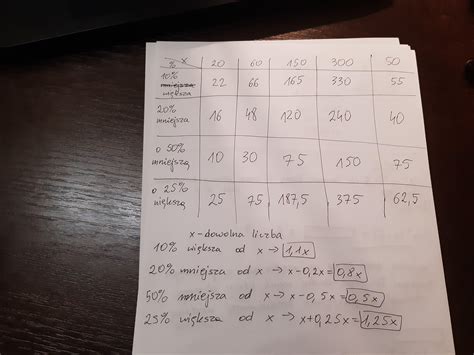 % x 20 60 150 300 50
10% mniejsza większa 22 66 165 330 55
20% mniejsza 16 48 120 240 40
o 50% mniejszą 10 30 75 150 75
o 25% większą 25 75 187,5 375 62,5
x - dowolna liczba
10% większa od x → 1,1x
20% mniejsza od x → x-0,2x = 0,8x
50% mniejsza od x → x-0,5x = 0,5x
25% większa od x → x+0,25x = 1,25x